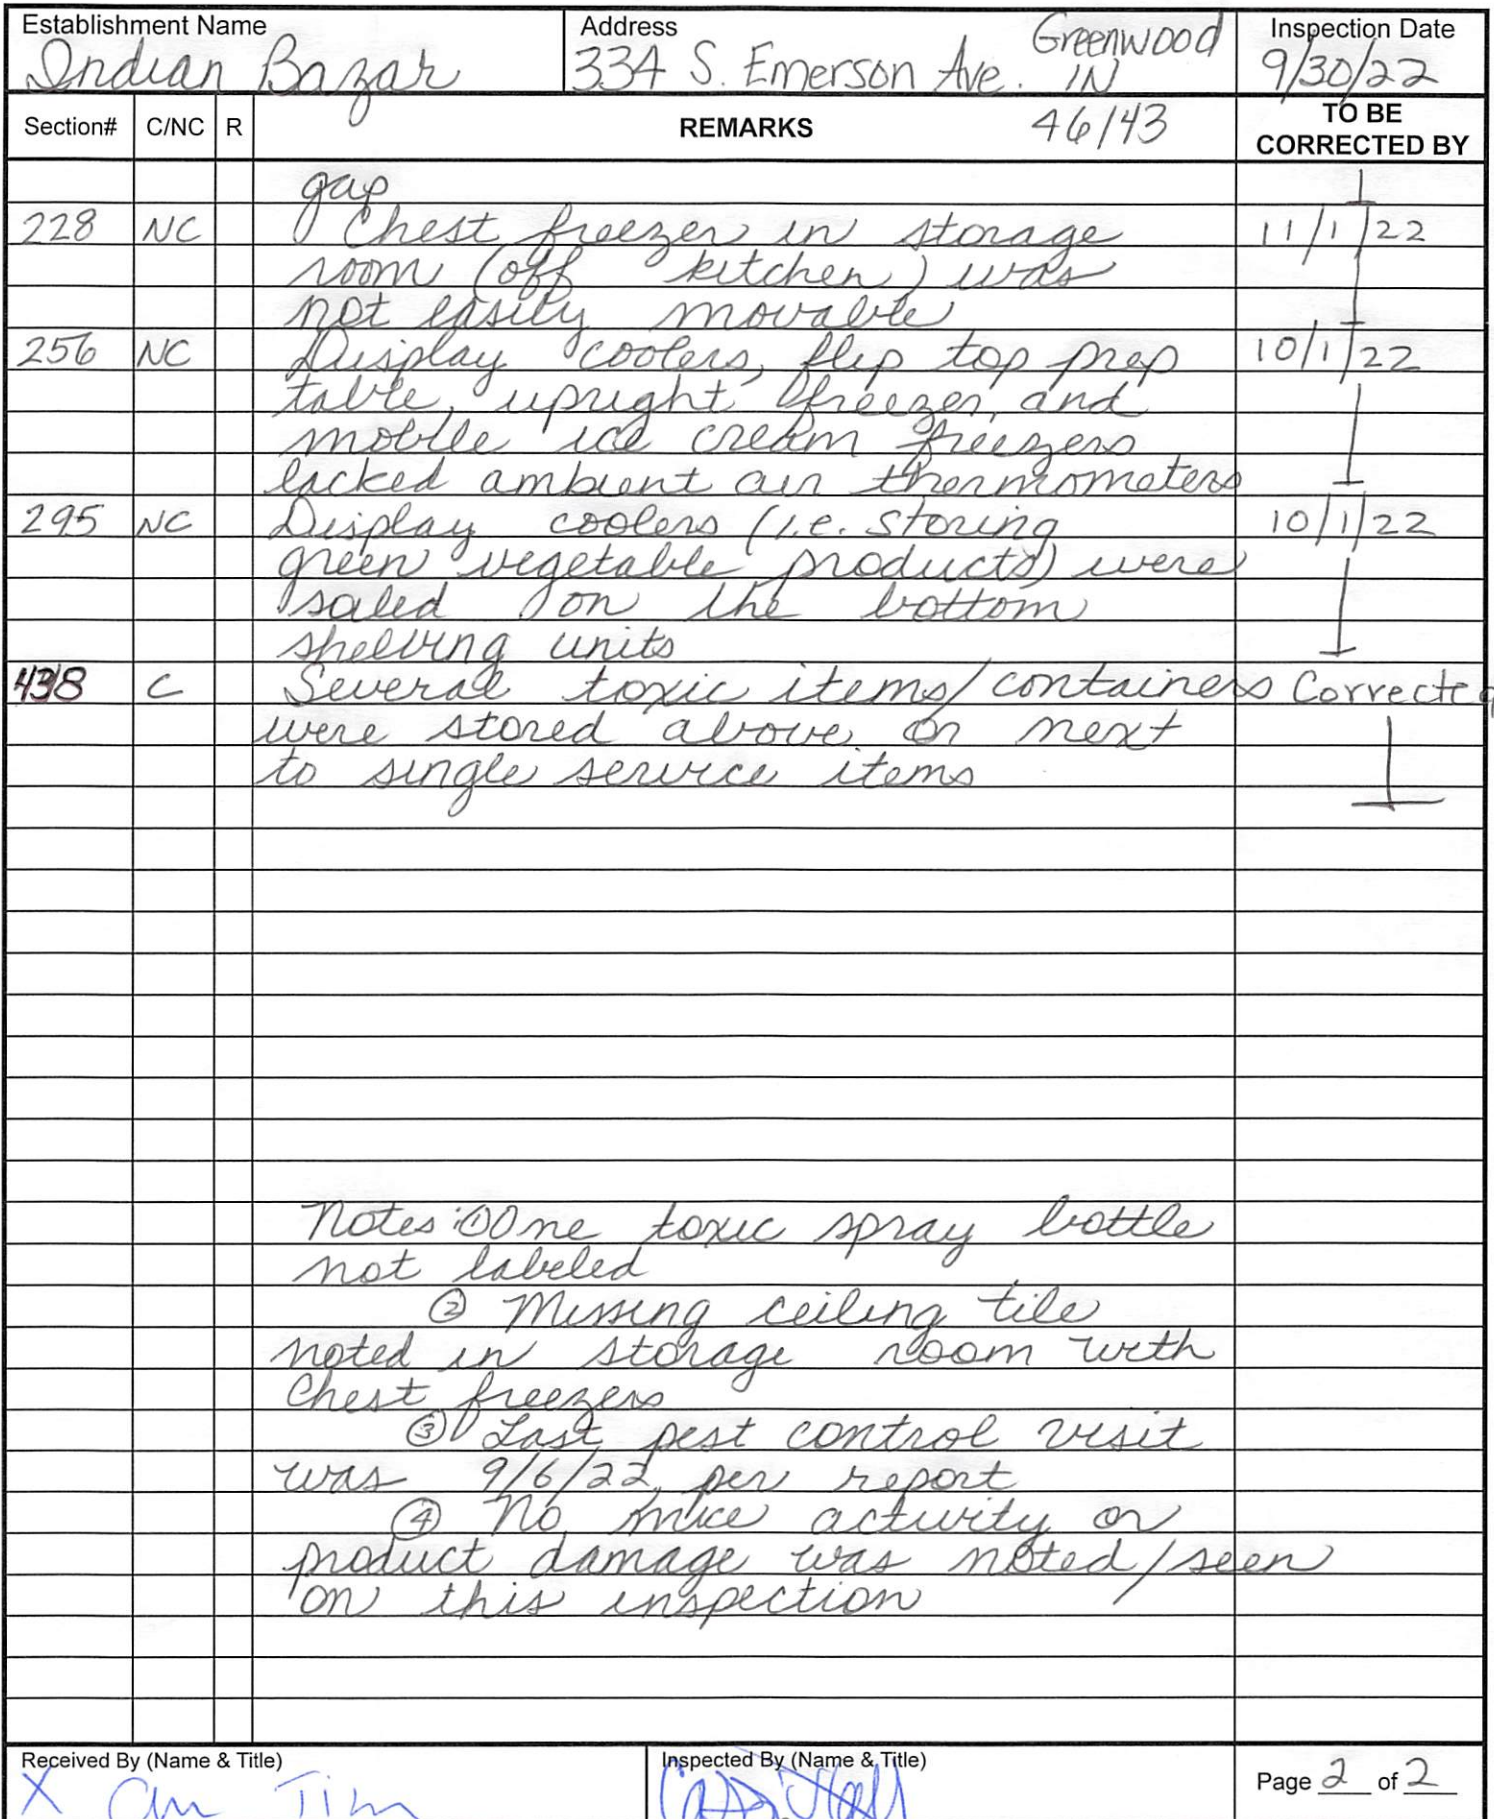 Establishment Name
Indian Bazar
Address
334 S. Emerson Ave. Greenwood IN
46143
Inspection Date
9/30/22
Section# C/NC R REMARKS TO BE CORRECTED BY
gap
228 NC Chest freezer in storage 11/1/22
room (off kitchen) was
not easily movable
256 NC Display coolers, flip top prep 10/1/22
table, upright freezer, and
mobile ice cream freezers
lacked ambient air thermometers
295 NC Display coolers (i.e. storing 10/1/22
green vegetable products) were
soiled on the bottom
shelving units
438 C Several toxic items/containers Corrected
were stored above or next
to single service items
Notes: ① One toxic spray bottle
not labeled
② Missing ceiling tile
noted in storage room with
chest freezers
③ Last pest control visit
was 9/6/22 per report
④ No mice activity or
product damage was noted/seen
on this inspection
Received By (Name & Title)
X
Inspected By (Name & Title)
Page 2 of 2